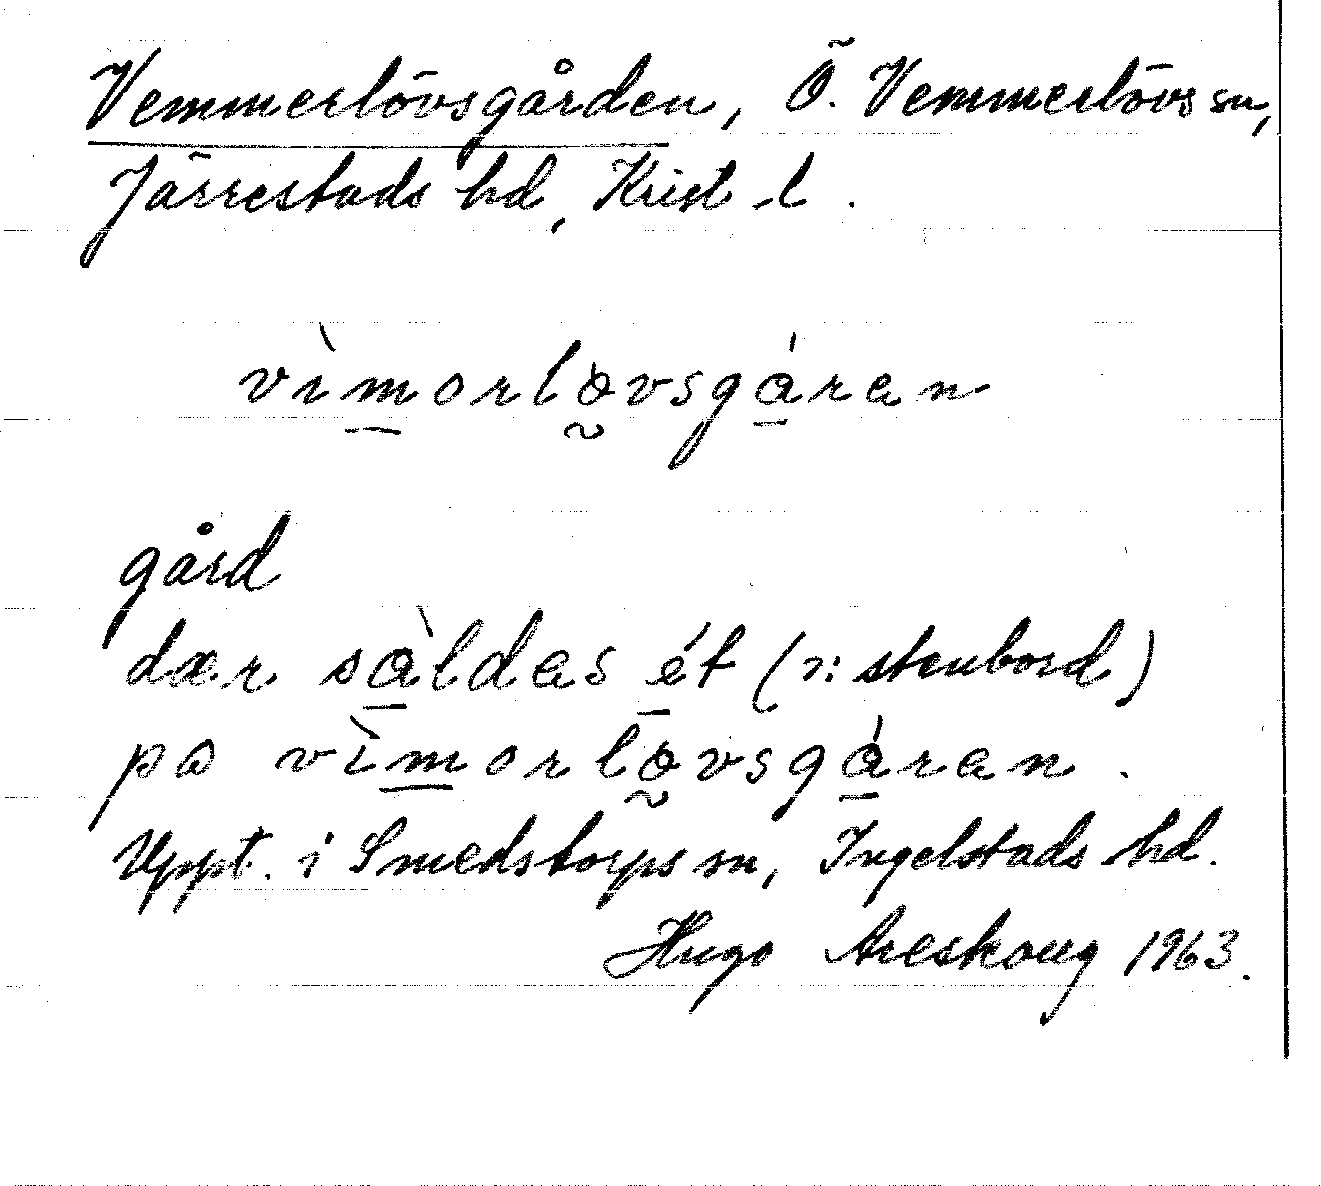 Vemmerlövsgården, Ö. Vemmerlövs sn,
Järrestads hd, Krist. l.
vìmorlövsgáran
gård
dær sàldas ét (ɔ: stenbord)
pa vìmorlövsgáran.
Uppt. i Smedstorps sn, Ingelstads hd.
Hugo Areskoug 1963.